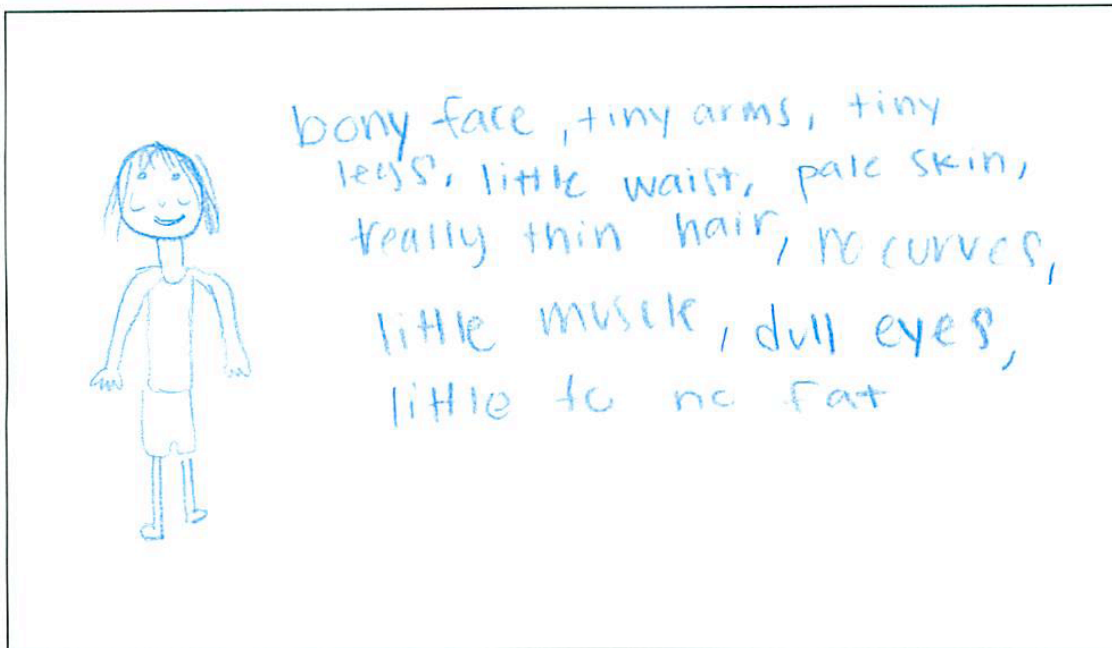 bony face, tiny arms, tiny
legs, little waist, pale skin,
really thin hair, no curves,
little muscle, dull eyes,
little to no fat